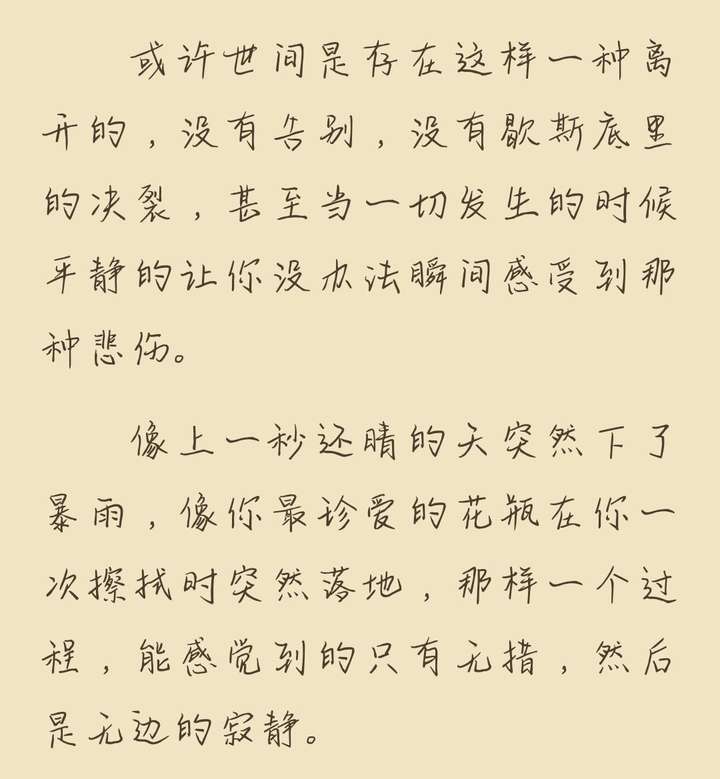 或许世间是存在这样一种离
开的，没有告别，没有歇斯底里
的决裂，甚至当一切发生的时候
平静的让你没办法瞬间感受到那
种悲伤。
像上一秒还晴的天突然下了
暴雨，像你最珍爱的花瓶在你一
次擦拭时突然落地，那样一个过
程，能感觉到的只有无措，然后
是无边的寂静。